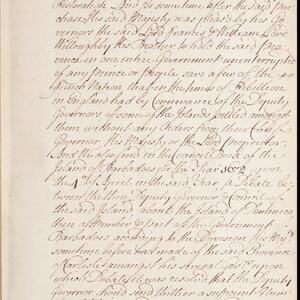 Restoration And for some time after the said pur
chase His said Majesty was pleased by his Go
vernors the said Lord Francis & William Lord
Willoughby his Brother to hold the said Pro
vence in one entire Government uninterrupted
of any Prince or People save a few of the
French Nation that in the times of Rebellion
in England had by connivance of the Deputy
Governors of some of the Islands settled amongst
them without any Orders from their Chief
Governor, His Majesty or the Lord proprietor
And We also find in the Councel Book of the
Island of Barbados for the Year 1672 upon
the 4th of April in the said Year, a Debate be
tween the then Deputy Governor & Councel of
the said Island, about the Island of Dominico
then a Member & part of the Government
Barbados according to the Division His Maj
sometime before had made of the said Province
of Carliola amongst his several Govern upon
which Debate it was resolved that the Deputy
Governor should send thither a sufficient Num